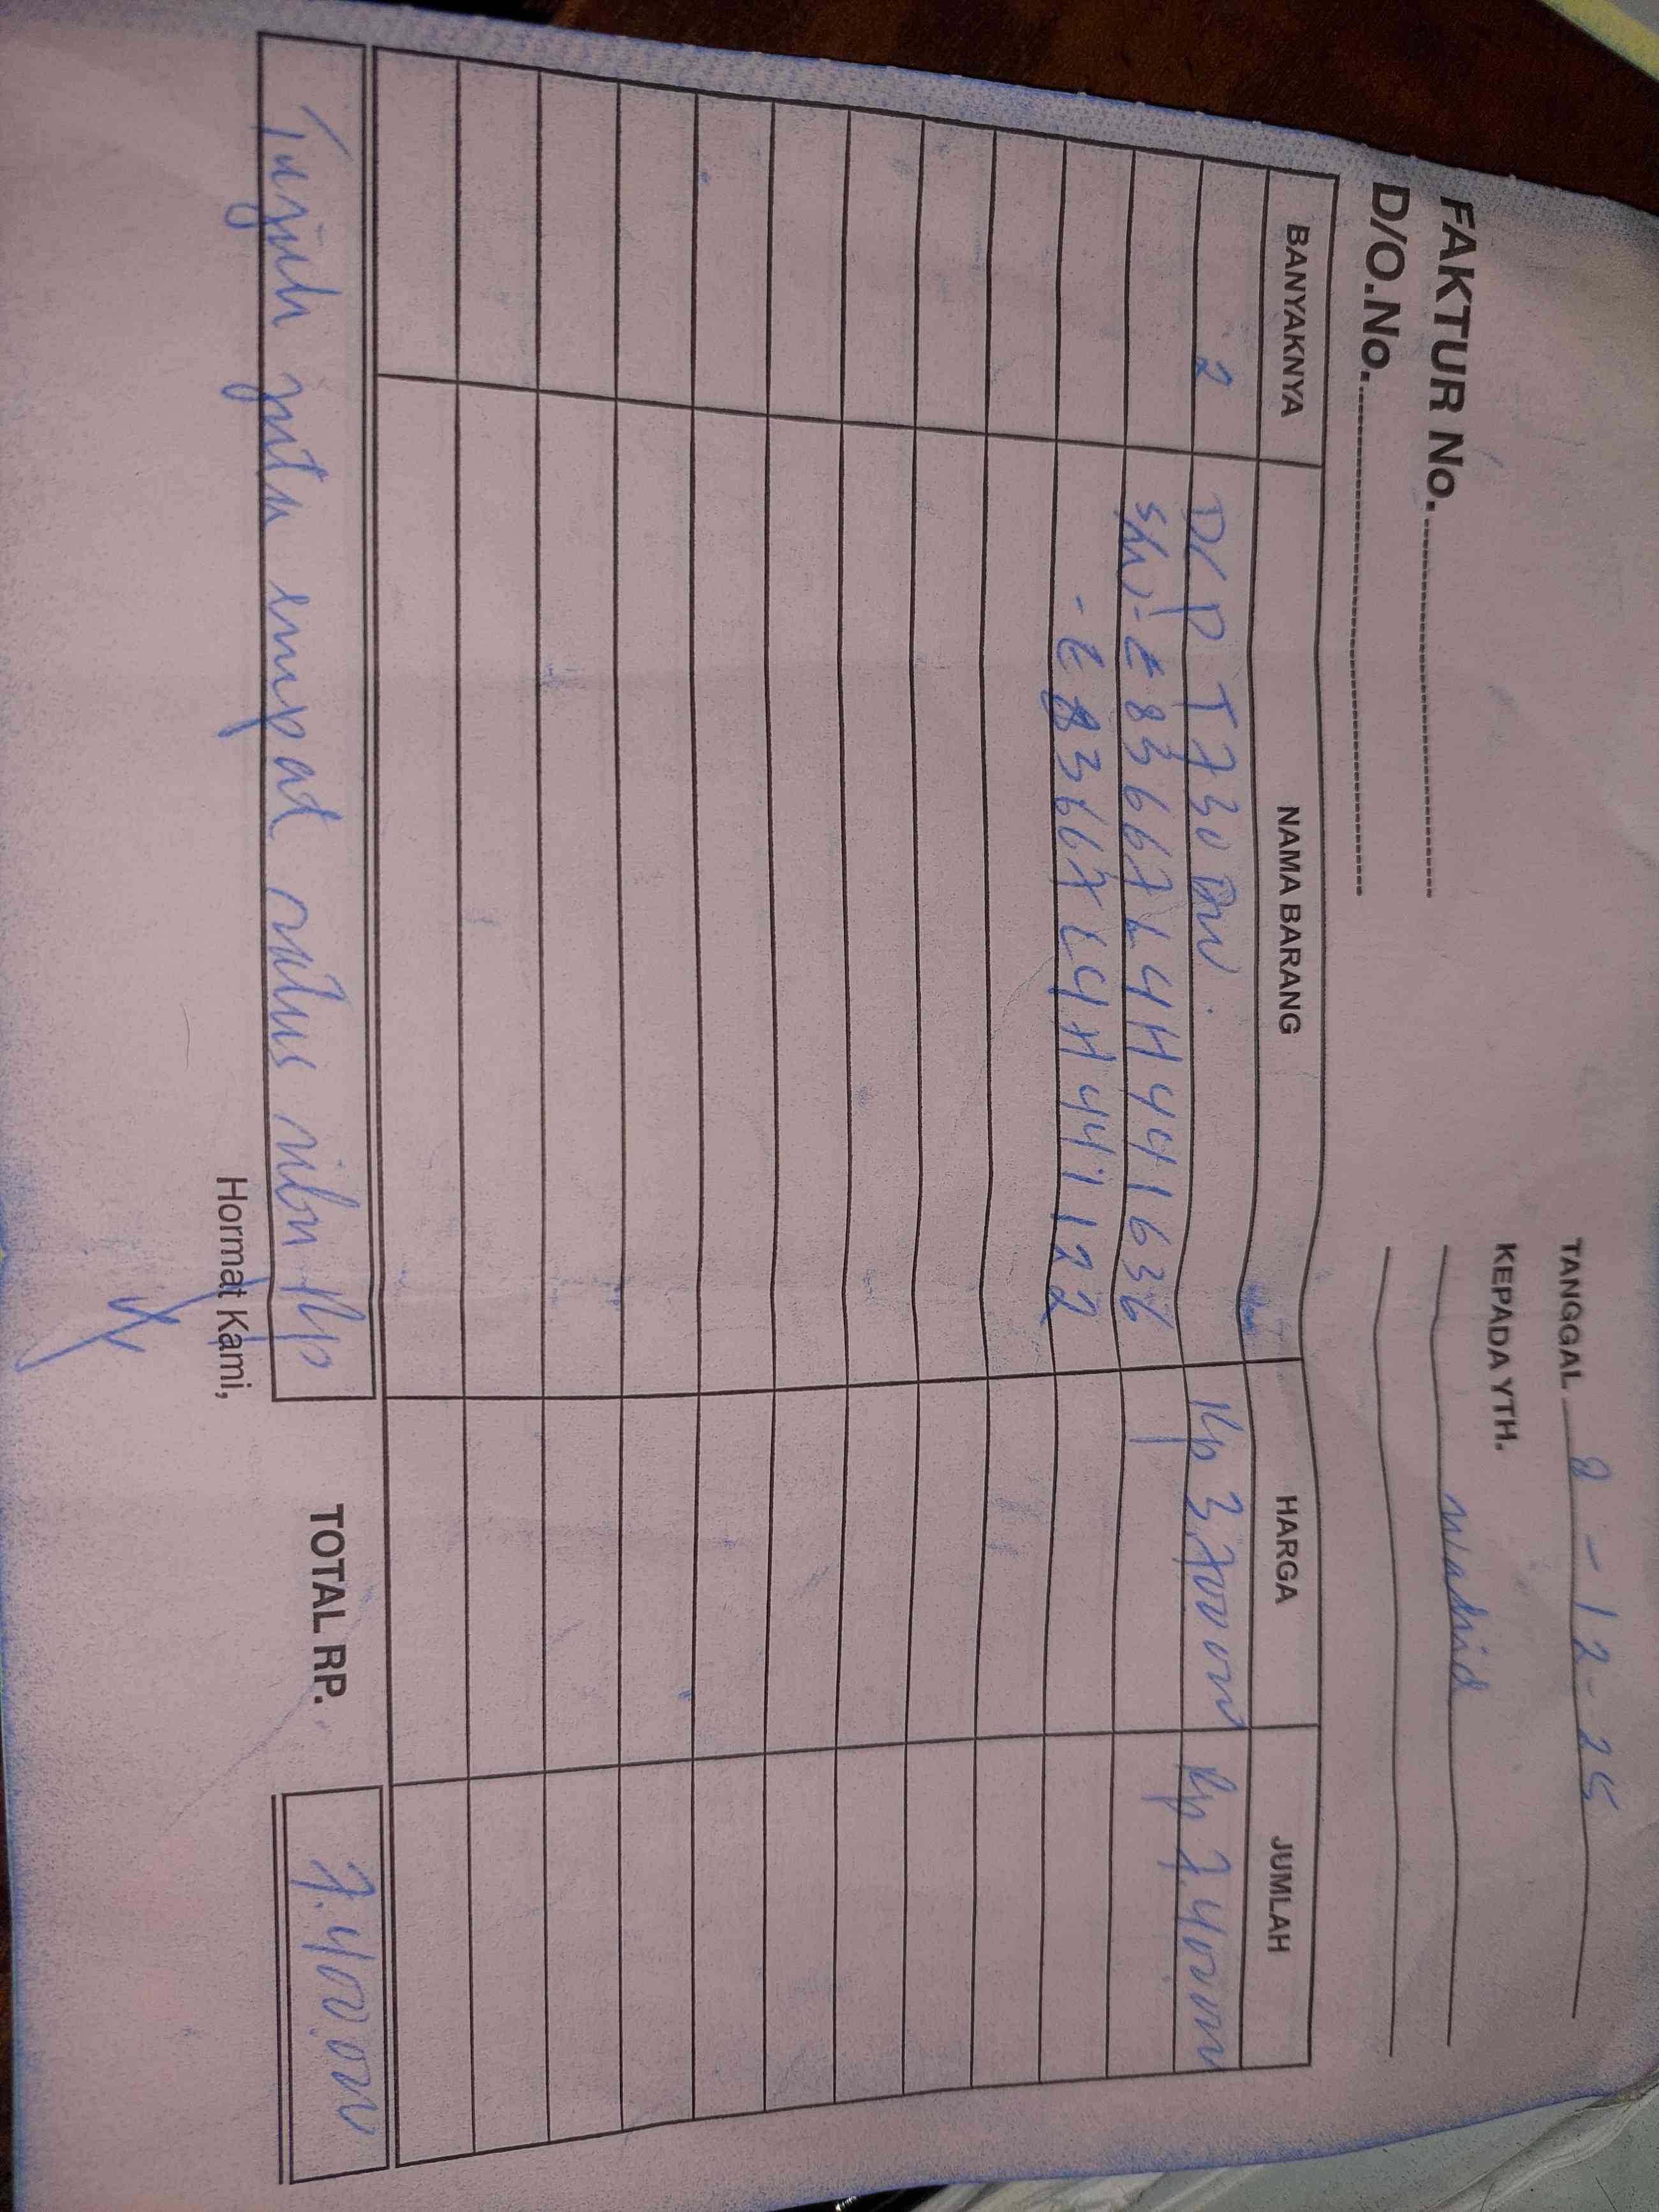 TANGGAL 8 - 12 - 25
FAKTUR No.
KEPADA YTH.
D/O.No.
BANYAKNYA NAMA BARANG HARGA JUMLAH
2 DCP T730 DW. Rp 3.700.000 Rp 7.400.000
S/N - E83667L4H441636
- E83667L4H447122
Tujuh juta empat ratus ribu Rp
TOTAL RP. 7.400.000
Hormat Kami,